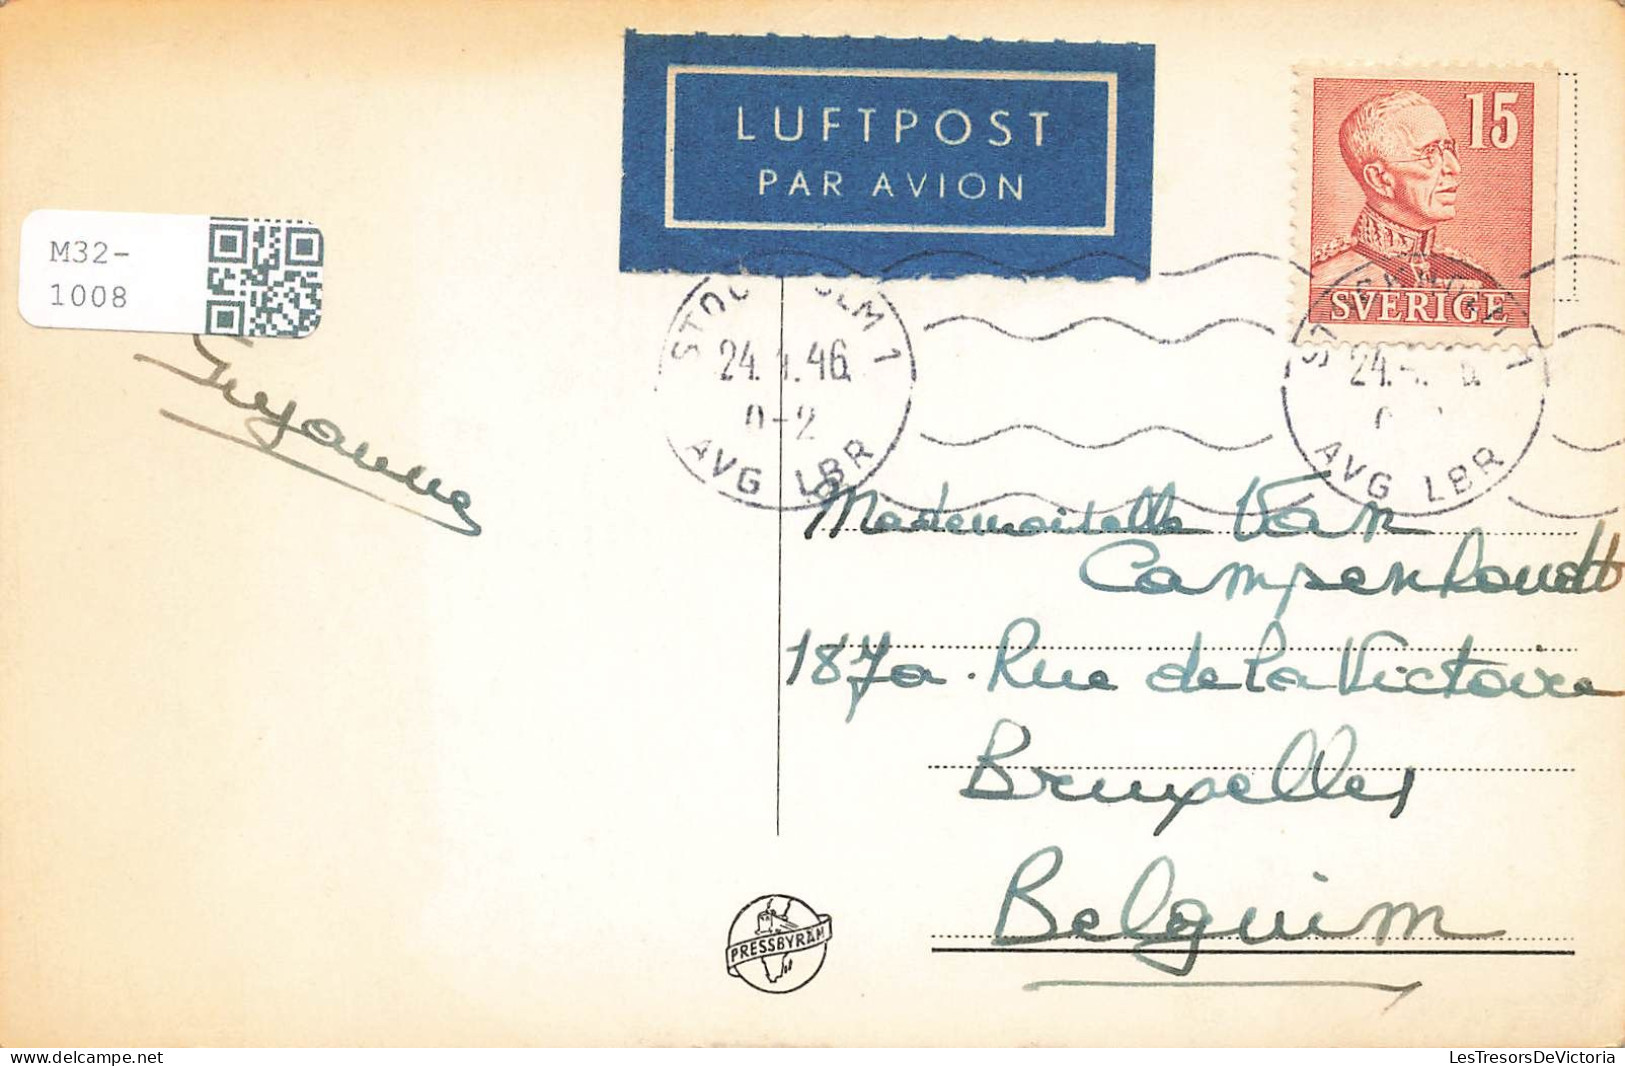 LUFTPOST
PAR AVION
15
SVERIGE
M32-
1008
STOCKHOLM 1
24. 1. 46
0-2
AVG LBR
STOCKHOLM 1
24.
AVG LBR
Suzanne
Mademoiselle Van
Campenhoudt
187a. Rue de la Victoire
Bruxelles
Belguim
PRESSBYRÅN
delcampe.net
LesTresorsDeVictoria